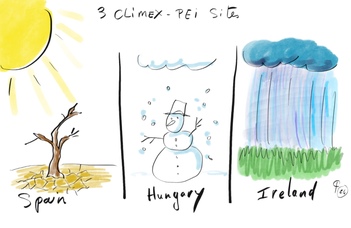 3 CLIMEX-PEI Sites
Spain
Hungary
Ireland